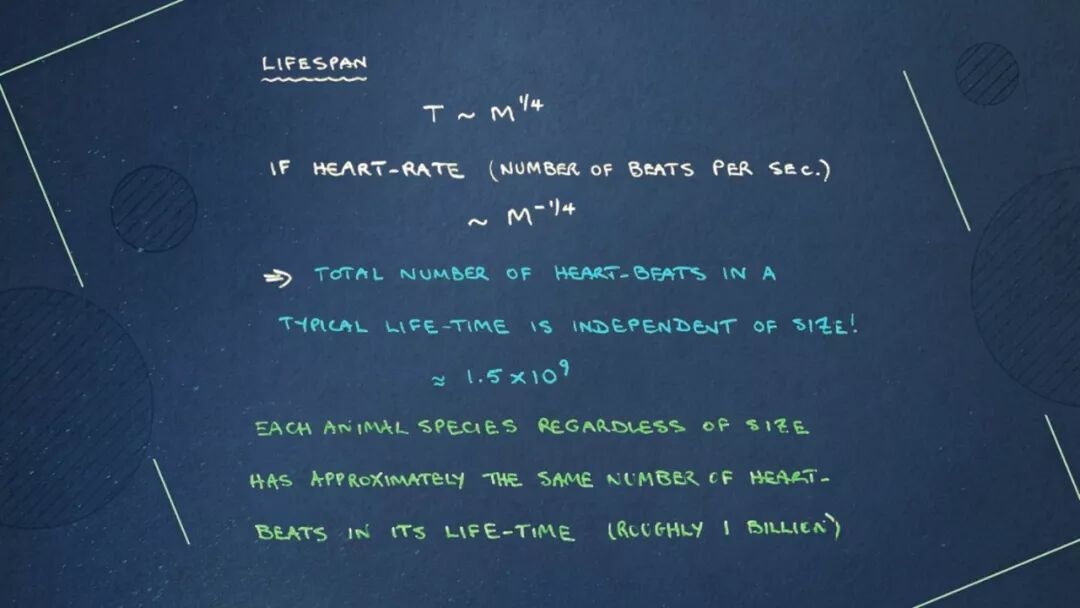 LIFESPAN
T ~ M^1/4
IF HEART-RATE (NUMBER OF BEATS PER SEC.)
~ M^-1/4
⇒ TOTAL NUMBER OF HEART-BEATS IN A
TYPICAL LIFE-TIME IS INDEPENDENT OF SIZE!
≈ 1.5×10^9
EACH ANIMAL SPECIES REGARDLESS OF SIZE
HAS APPROXIMATELY THE SAME NUMBER OF HEART-
BEATS IN ITS LIFE-TIME (ROUGHLY 1 BILLION)